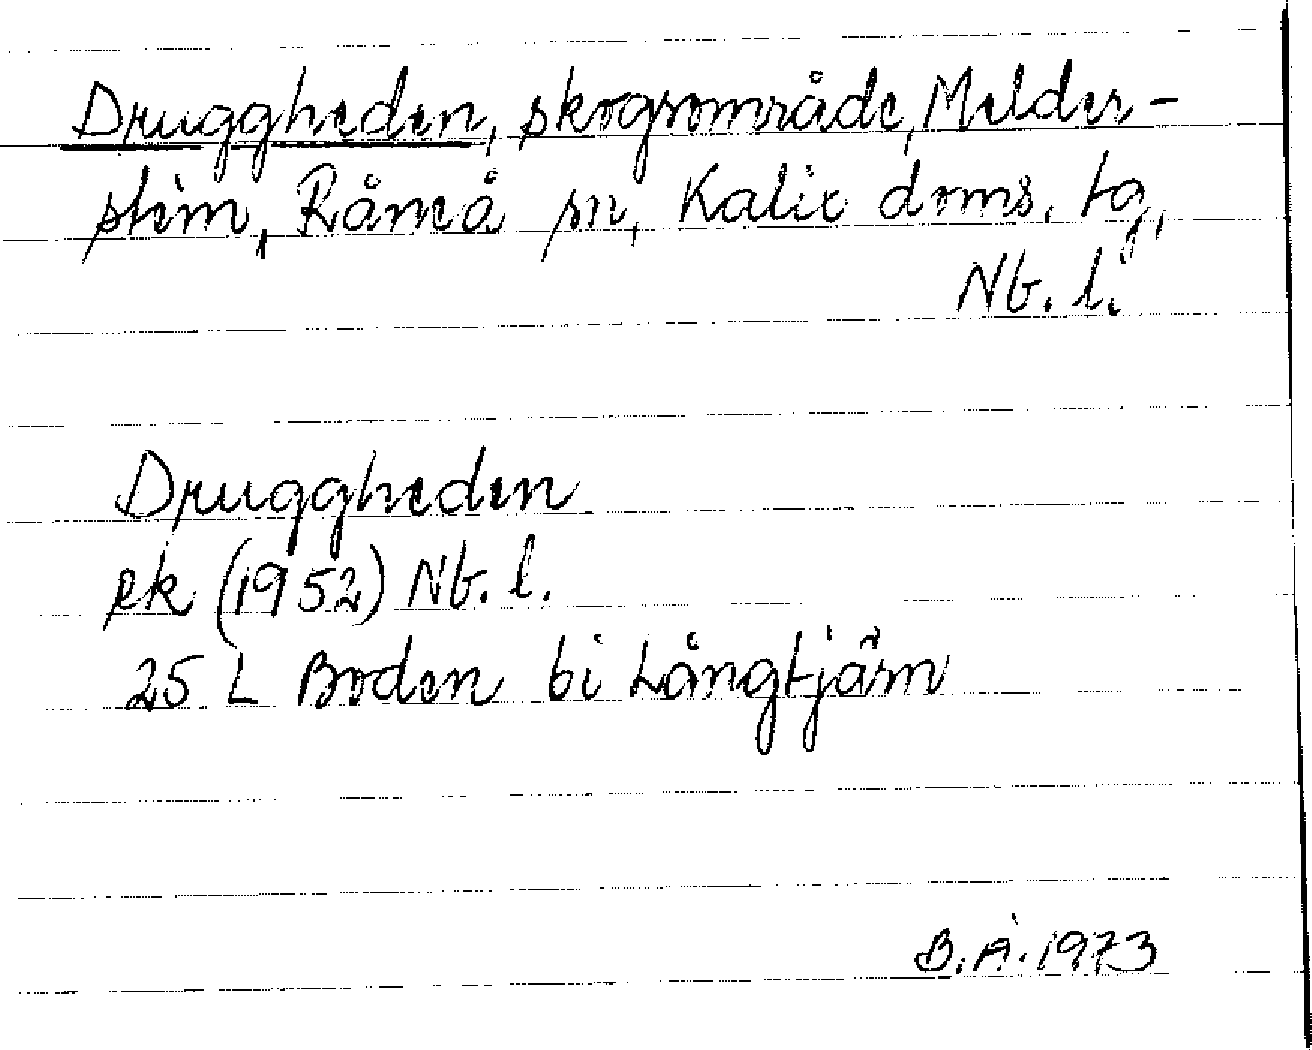 Druggheden, skogsområde, Melder-
stein, Råneå sn, Kalix doms. tg,
Nb. l.
Druggheden
ek (1952) Nb. l.
25 L Boden bi Långtjärn
B.Å. 1973